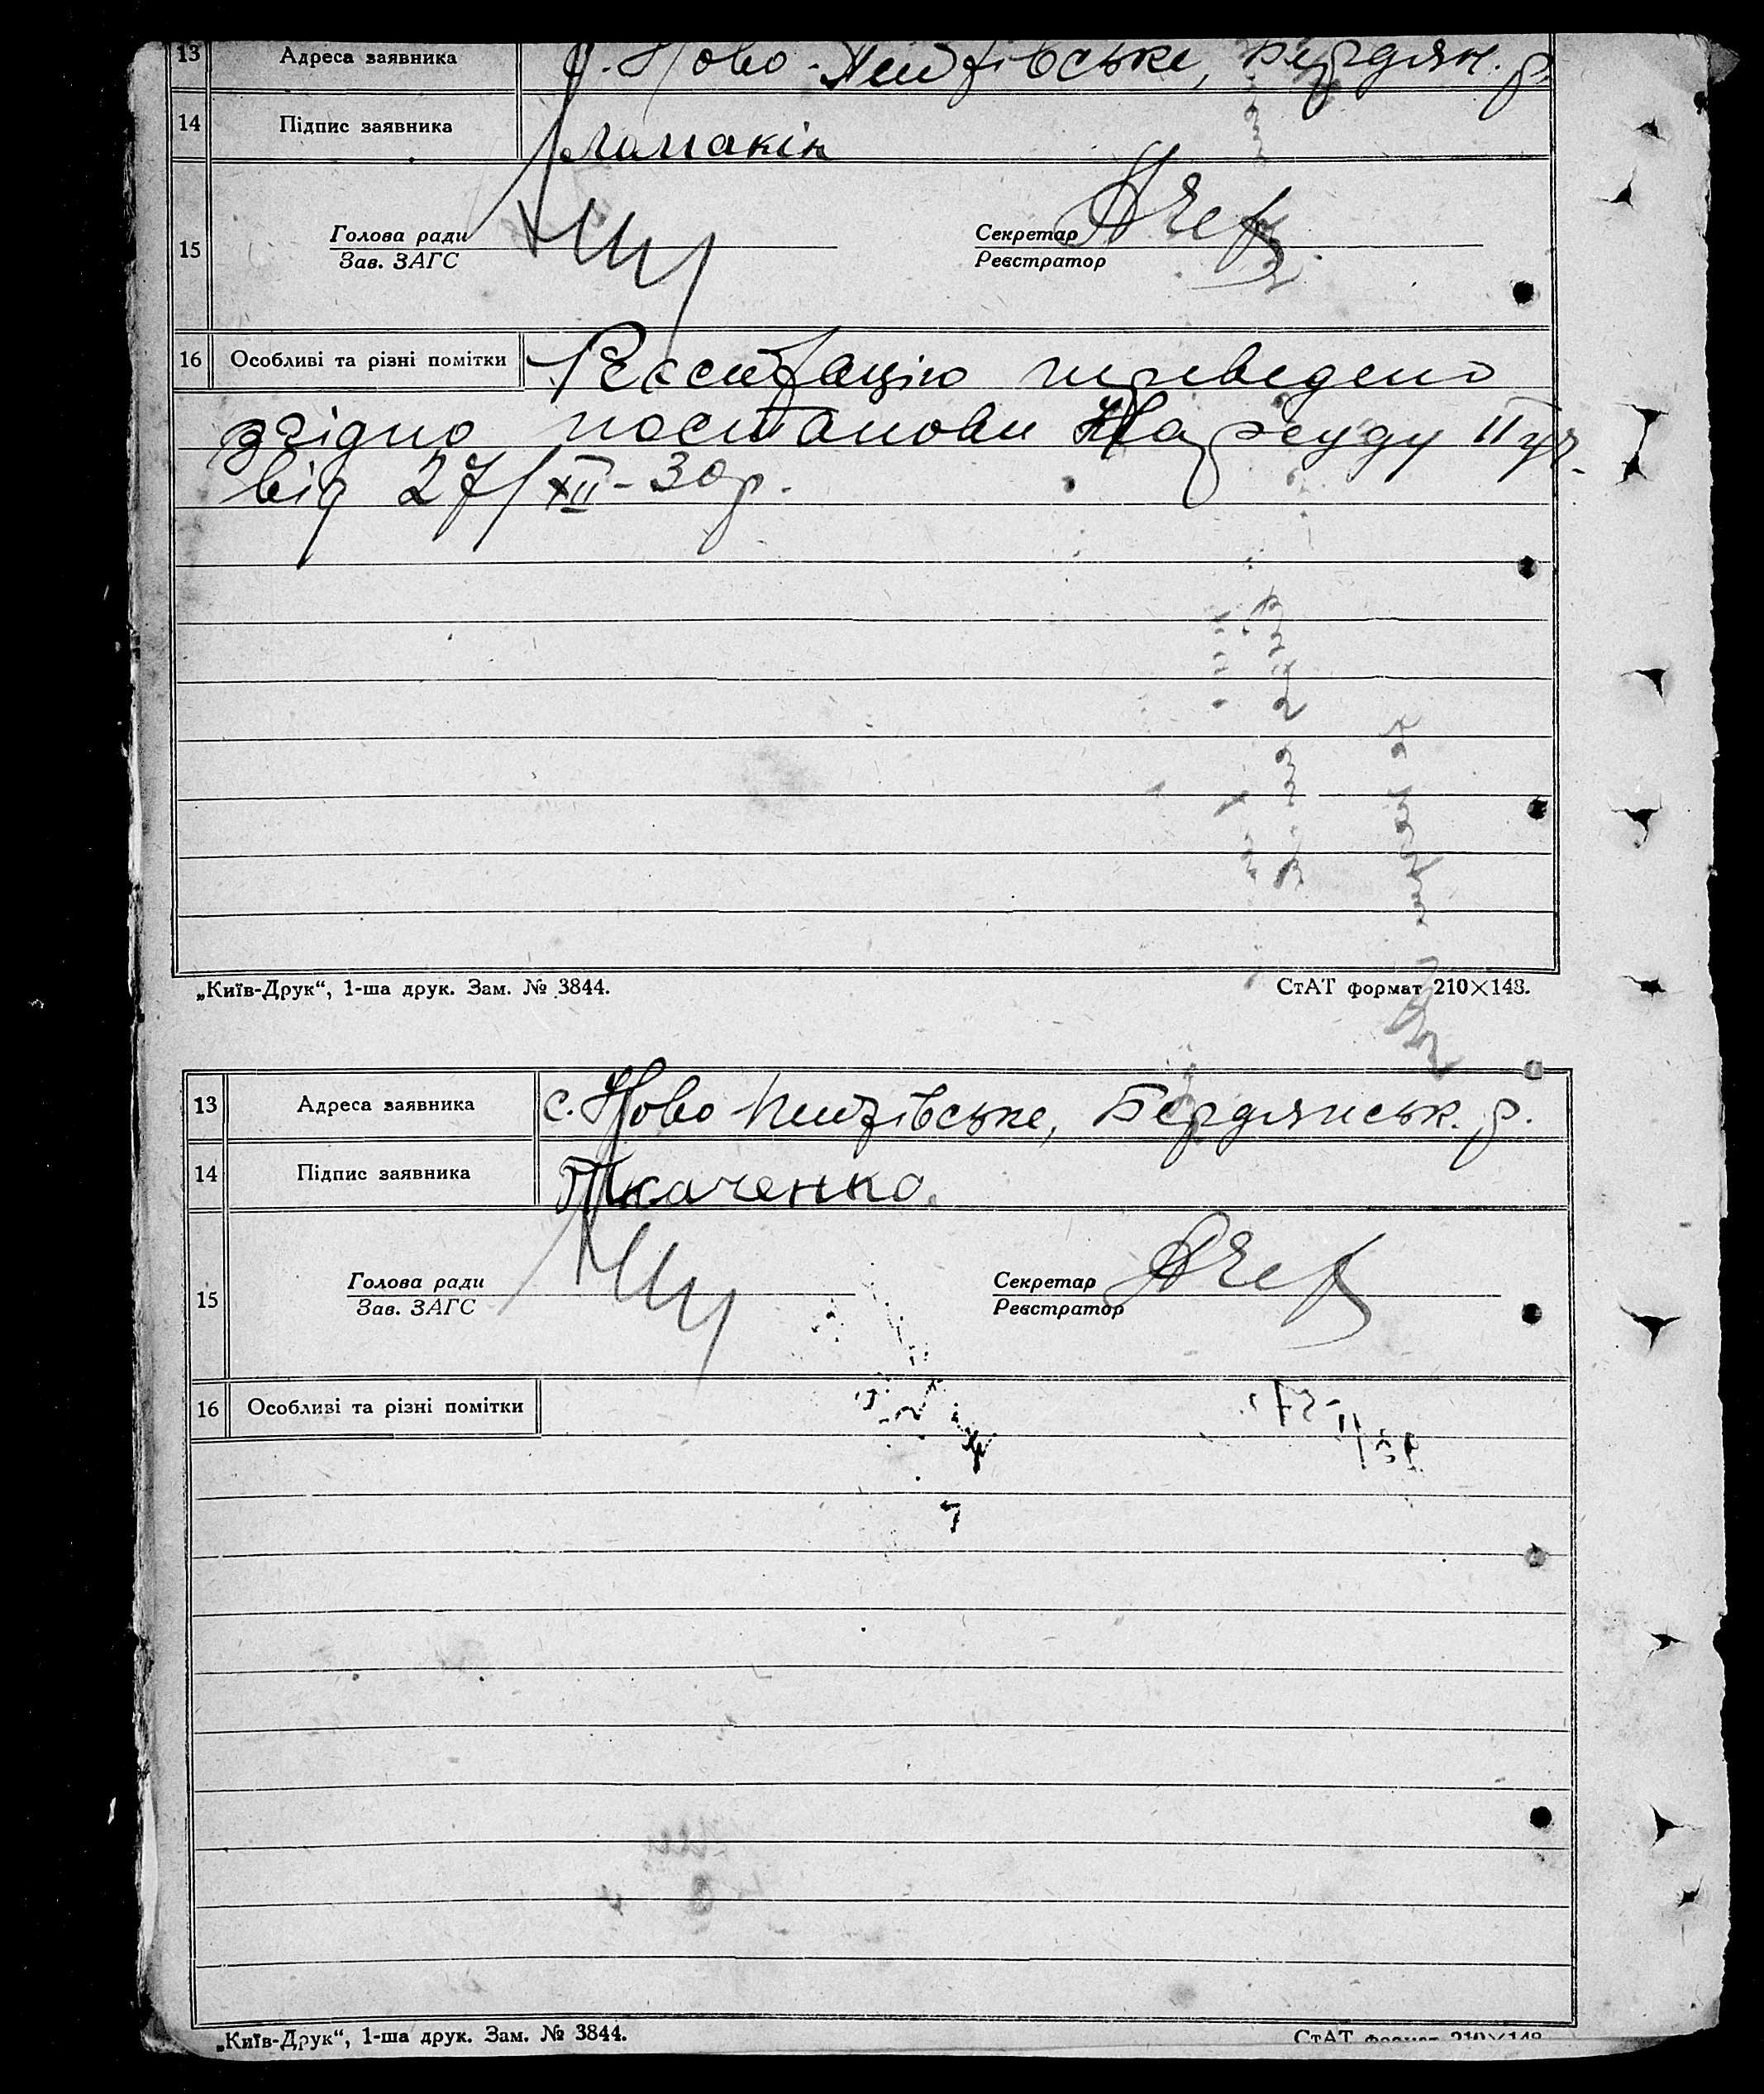 13 Адреса заявника с. Ново-Петрівське, Бердян. р.
14 Підпис заявника Ламакін
15 Голова ради Секретар
Зав. ЗАГС Реєстратор
16 Особливі та різні помітки Реєстрацію переведено
згідно постанови Нарсуду II уч.
від 27/XII-30р.
„Київ-Друк“, 1-ша друк. Зам. № 3844. СтАТ формат 210×148.
13 Адреса заявника с. Ново Петрівське, Бердянськ. р.
14 Підпис заявника Ткаченко
15 Голова ради Секретар
Зав. ЗАГС Реєстратор
16 Особливі та різні помітки
„Київ-Друк“, 1-ша друк. Зам. № 3844. СтАТ формат 210×148